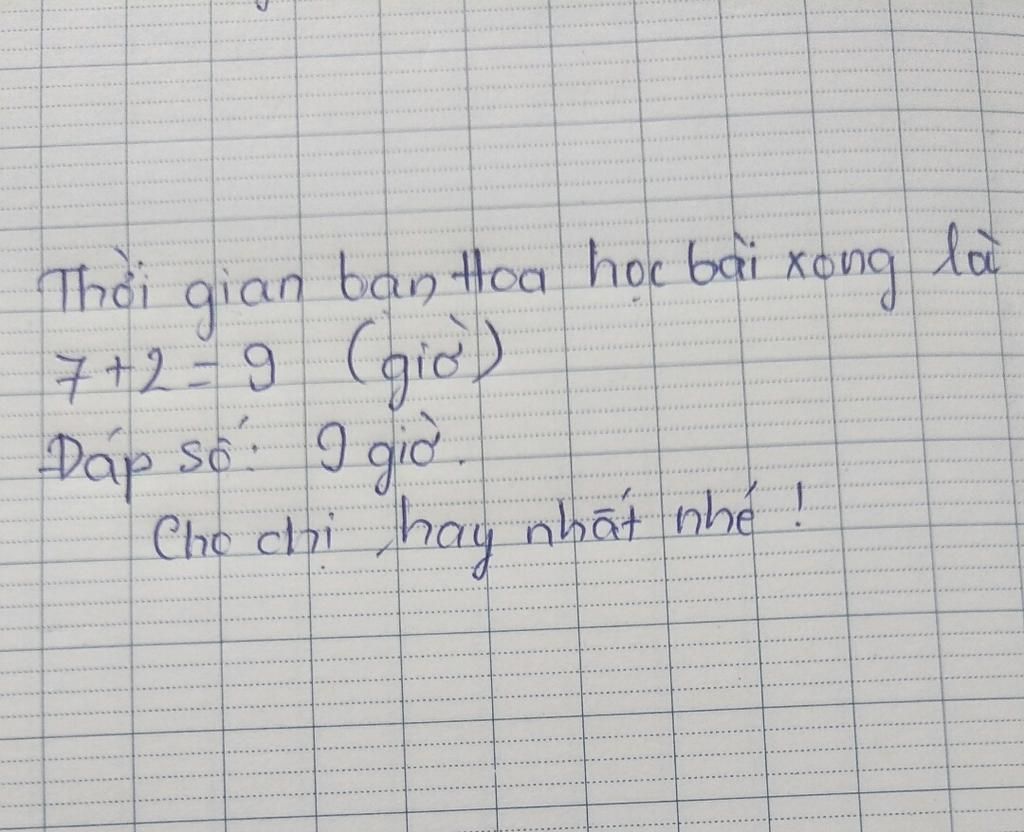 Thời gian bạn Hoa học bài xong là
7+2=9 (giờ)
Đáp số: 9 giờ.
Cho chị hay nhất nhé!